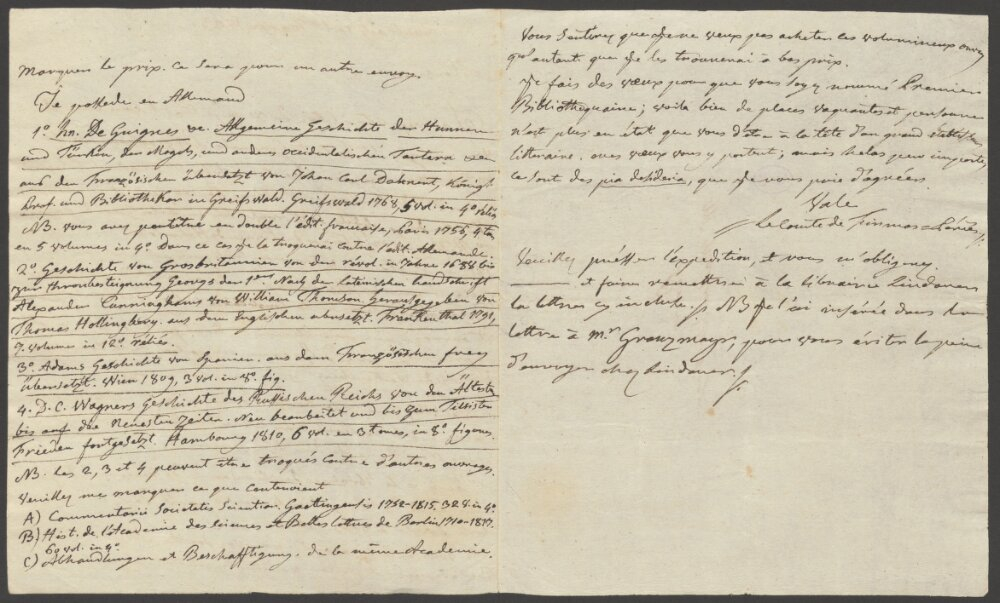 Marquez le prix. Ce sera pour un autre envoy.
Je possede en Allemand
1º. Hn. De Guignes Allgemeine Geschichte der Hunnen
und Türken, der Mogols, und anderer occidentalischen Tartarn
aus dem Französischen übersetzt von Johan Carl Dahnert, Königl.
Prof. und Bibliothekar in Greifswald. Greifswald 1768, 5 vol. in 4º reliés
NB. vous avez peutêtre en double l'édit. française, Paris 1756, 4 to.
en 5 volumes in 4º. Dans ce cas je la troquerai contre l'édit. Allemande.
2º. Geschichte von Grosbritannien von der révol. im Jahre 1688 bis
zur Thronbesteigung Georgs des 1ers. Nach der lateinischen handschrift
Alexander Cunninghams von William Thomson. Herausgegeben von
Thomas Hollingbery. aus dem Englischen übersetzt. Frankenthal 1791,
7. volume in 12º. reliés.
3º. Adams Geschichte von Spanien. aus dem Französischen frey
übersetzt. Wien 1809, 3 vol. in 8º. fig.
4. D. C. Wagners Geschichte des Russischen Reichs von den Ältesten
bis auf die Neuesten Zeiten. Neu bearbeitet und bis zum Tilsiter
Frieden fortgesetzt. Hambourg 1810, 6 vol. en 3 tomes, in 8º. figures.
NB. Les 2, 3 et 4 peuvent être troqués contre d'autres ouvrages.
Veuillez me marquer ce que contiennent
A) Commentarii Societatis Scientiar. Goettingensis 1752-1815. 32 v. in 4º
B) Hist. de l'Académie des Sciences et Belles lettres de Berlin 1710-1817.
60 vol. in 4º
C) Abhandlungen et Beschafftigung. de la même Academie.
Vous sentirez que je ne veux pas acheter ces volumineux ouvr.
qu'autant que je les trouverai à bas prix.
Je fais des vœux pour que vous soyez nommé Premier
Bibliothequaire; voila bien de places vaquantes et personne
n'est plus en état que vous d'être à la tête d'un grand établiss.
litteraire. mes vœux vous y portent; mais helas peu importe,
ce sont des pia desideria, que je vous prie d'agréer.
Vale
Le Comte de
Veuillez presser l'expedition, et vous m'obligerez
et faire remettre à la Librairie Lindauer
la lettre cy incluse. NB Je l'ai inserée dans la
lettre à Mr. pour vous éviter la peine
d'envoyer chez Lindauer.